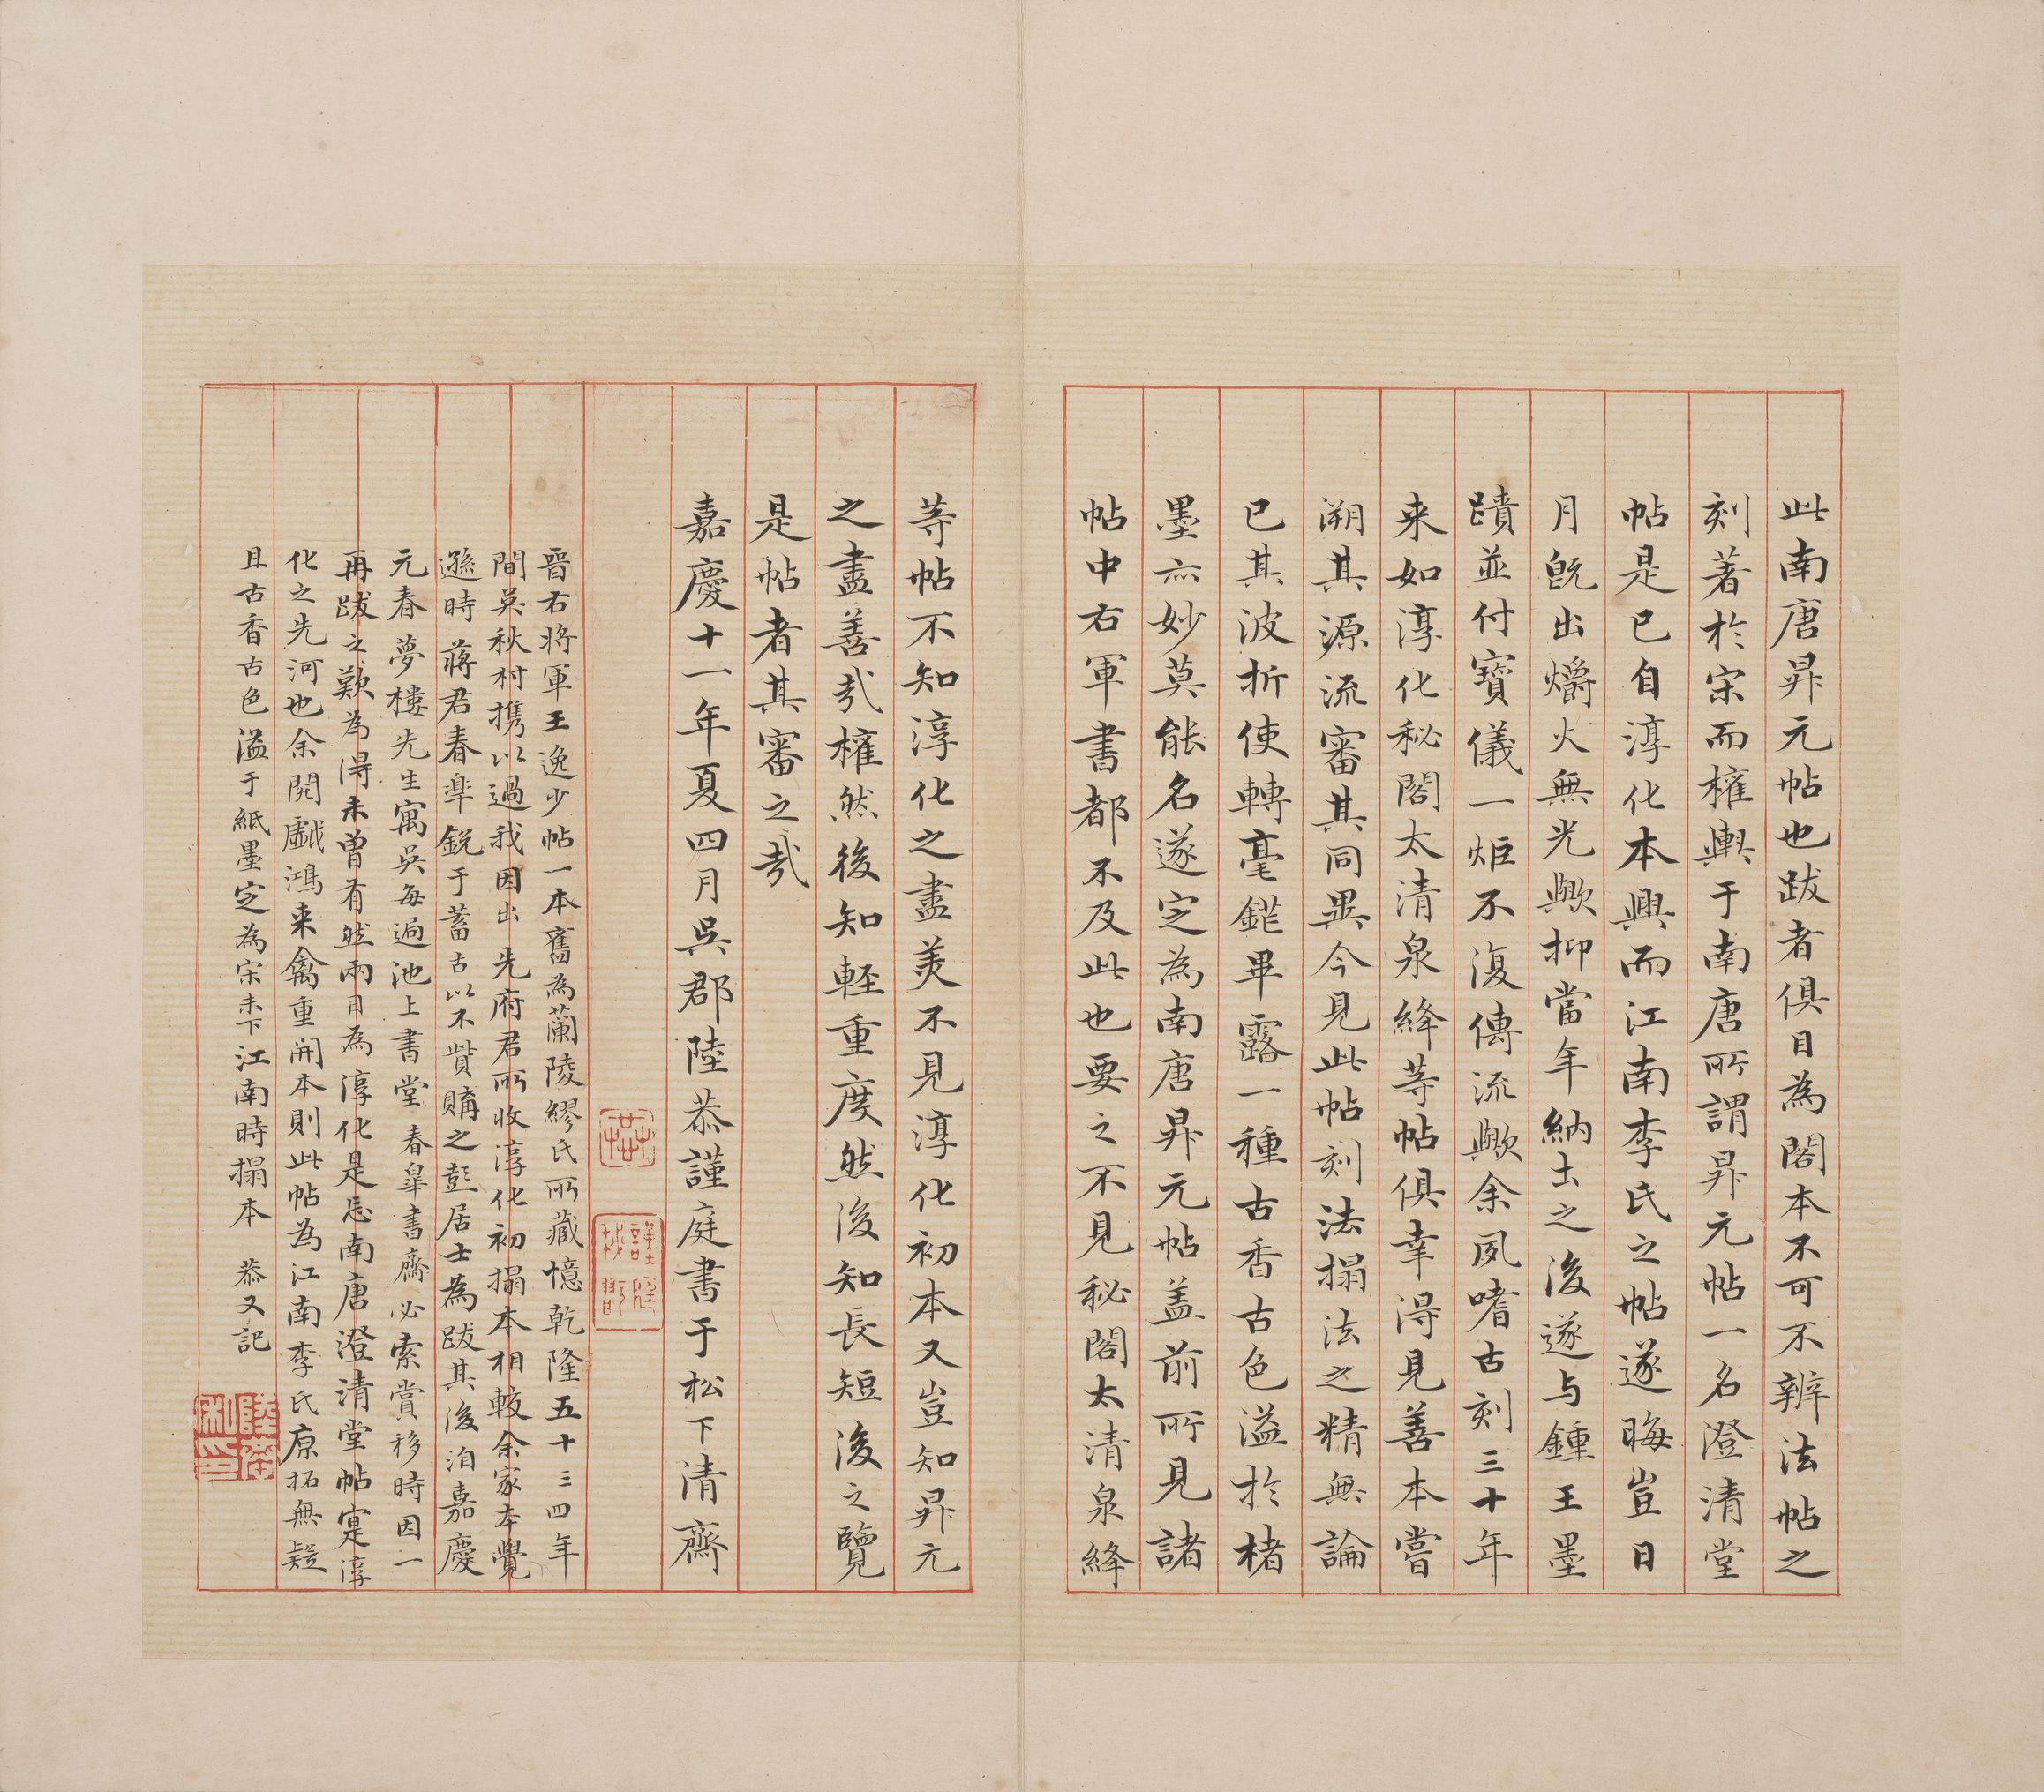 此南唐昇元帖也跋者俱目為閣本不可不辨法帖之
刻著於宋而權輿于南唐所謂昇元帖一名澄清堂
帖是已自淳化本興而江南李氏之帖遂晦豈日
月既出爝火無光歟抑當年納土之後遂与鍾王墨
蹟並付寶儀一炬不復傳流歟余夙嗜古刻三十年
来如淳化秘閣太清泉絳等帖俱幸得見善本嘗
溯其源流審其同異今見此帖刻法搨法之精無論
已其波折使轉毫鋩畢露一種古香古色溢於楮
墨亦妙莫能名遂定為南唐昇元帖盖前所見諸
帖中右軍書都不及此也要之不見秘閣太清泉絳
等帖不知淳化之盡美不見淳化初本又豈知昇元
之盡善哉權然後知輕重度然後知長短後之覽
是帖者其審之哉
嘉慶十一年夏四月吳郡陸恭謹庭書于松下清齋
晋右将軍王逸少帖一本舊為蘭陵繆氏所藏憶乾隆五十三四年
間吳秋村携以過我因出先府君所收淳化初搨本相較余家本覺
遜時蔣君春皋銳于蓄古以不貲購之彭居士為跋其後洎嘉慶
元春夢樓先生寓吳每過池上書堂春皋書齋必索賞移時因一
再跋之歎為得未曾有然兩目為淳化是忘南唐澄清堂帖寔淳
化之先河也余閱戲鴻来禽重開本則此帖為江南李氏原拓無疑
且古香古色溢于紙墨定為宋未下江南時搨本 恭又記